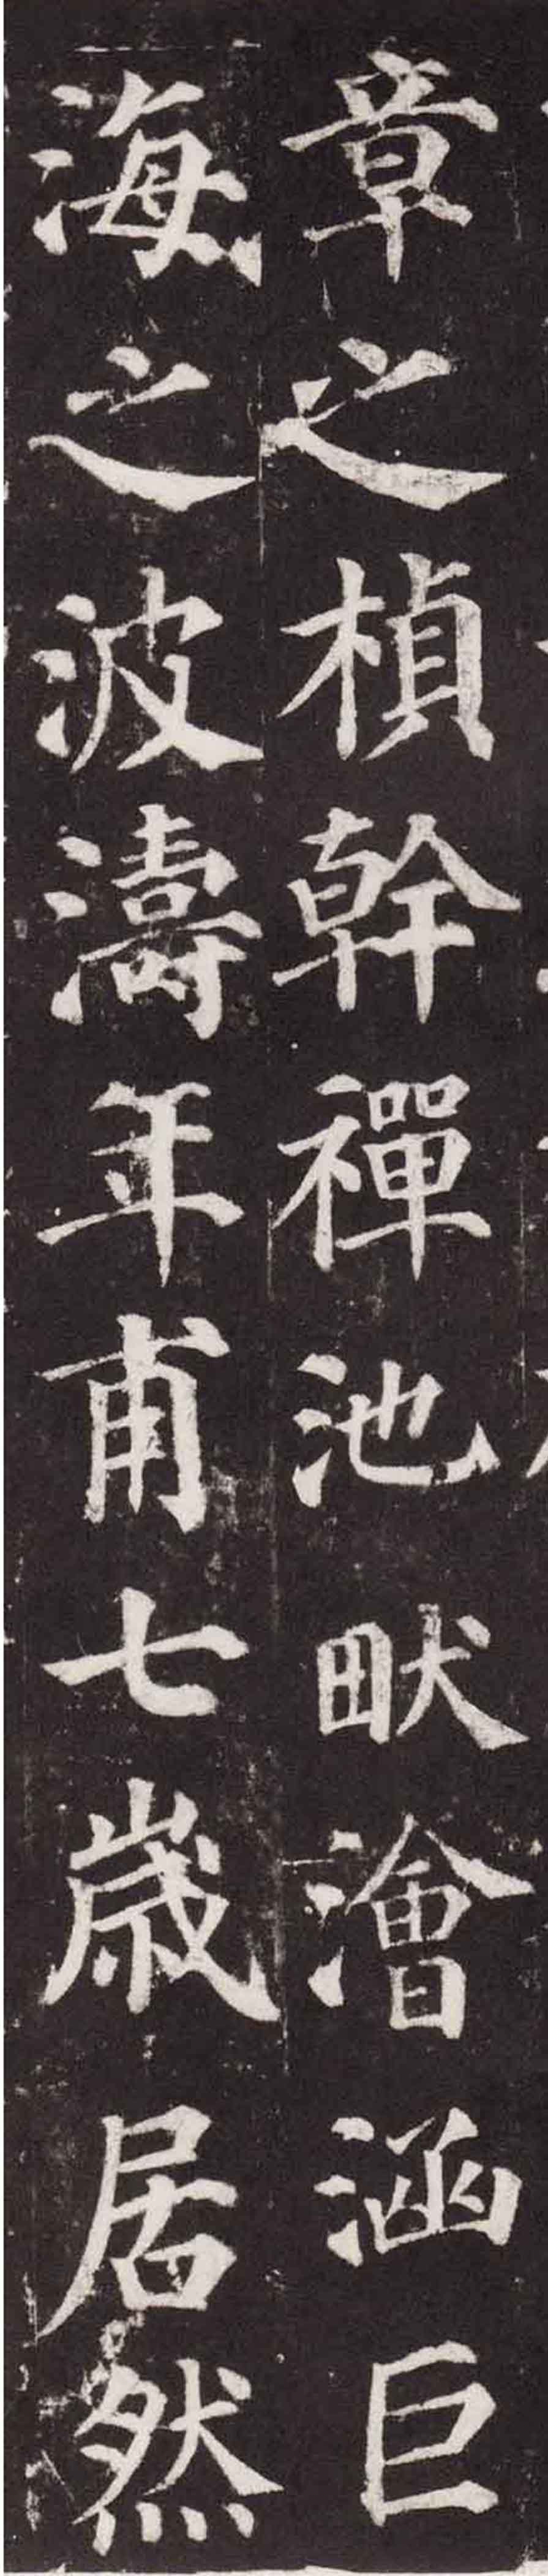 章之楨幹禪池畎澮涵巨
海之波濤年甫七歲居然